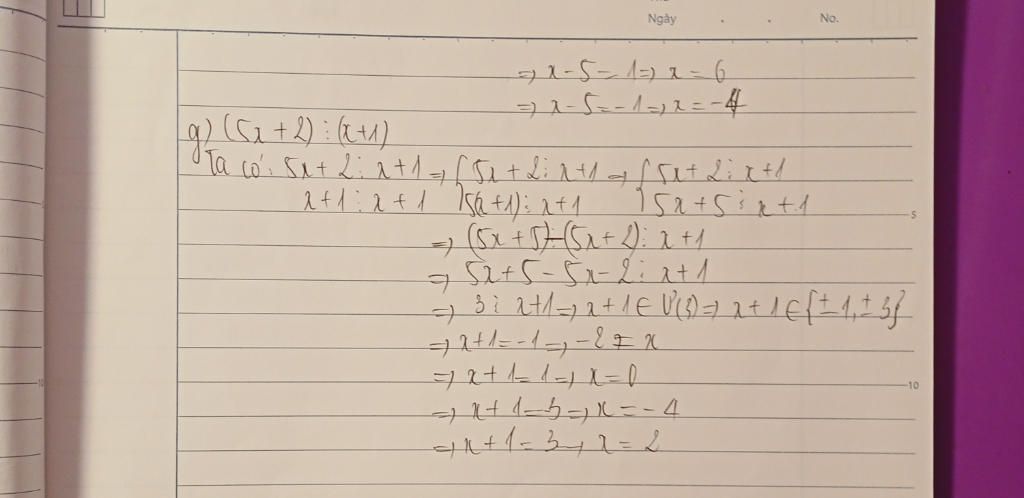 Ngày . . No.
=> x - 5 = 1 => x = 6
=> x - 5 = -1 => x = -4
g) (5x + 2) ⋮ (x+1)
Ta có: 5x + 2 ⋮ x + 1 => { 5x + 2 ⋮ x + 1 => { 5x + 2 ⋮ x + 1
x + 1 ⋮ x + 1 5(x + 1) ⋮ x + 1 5x + 5 ⋮ x + 1
5
=> (5x + 5) - (5x + 2) ⋮ x + 1
=> 5x + 5 - 5x - 2 ⋮ x + 1
=> 3 ⋮ x + 1 => x + 1 ∈ Ư(3) => x + 1 ∈ {± 1, ± 3}
=> x + 1 = -1 => -2 = x
=> x + 1 = 1 => x = 0
10
10
=> x + 1 = -3 => x = -4
=> x + 1 = 3 => x = 2